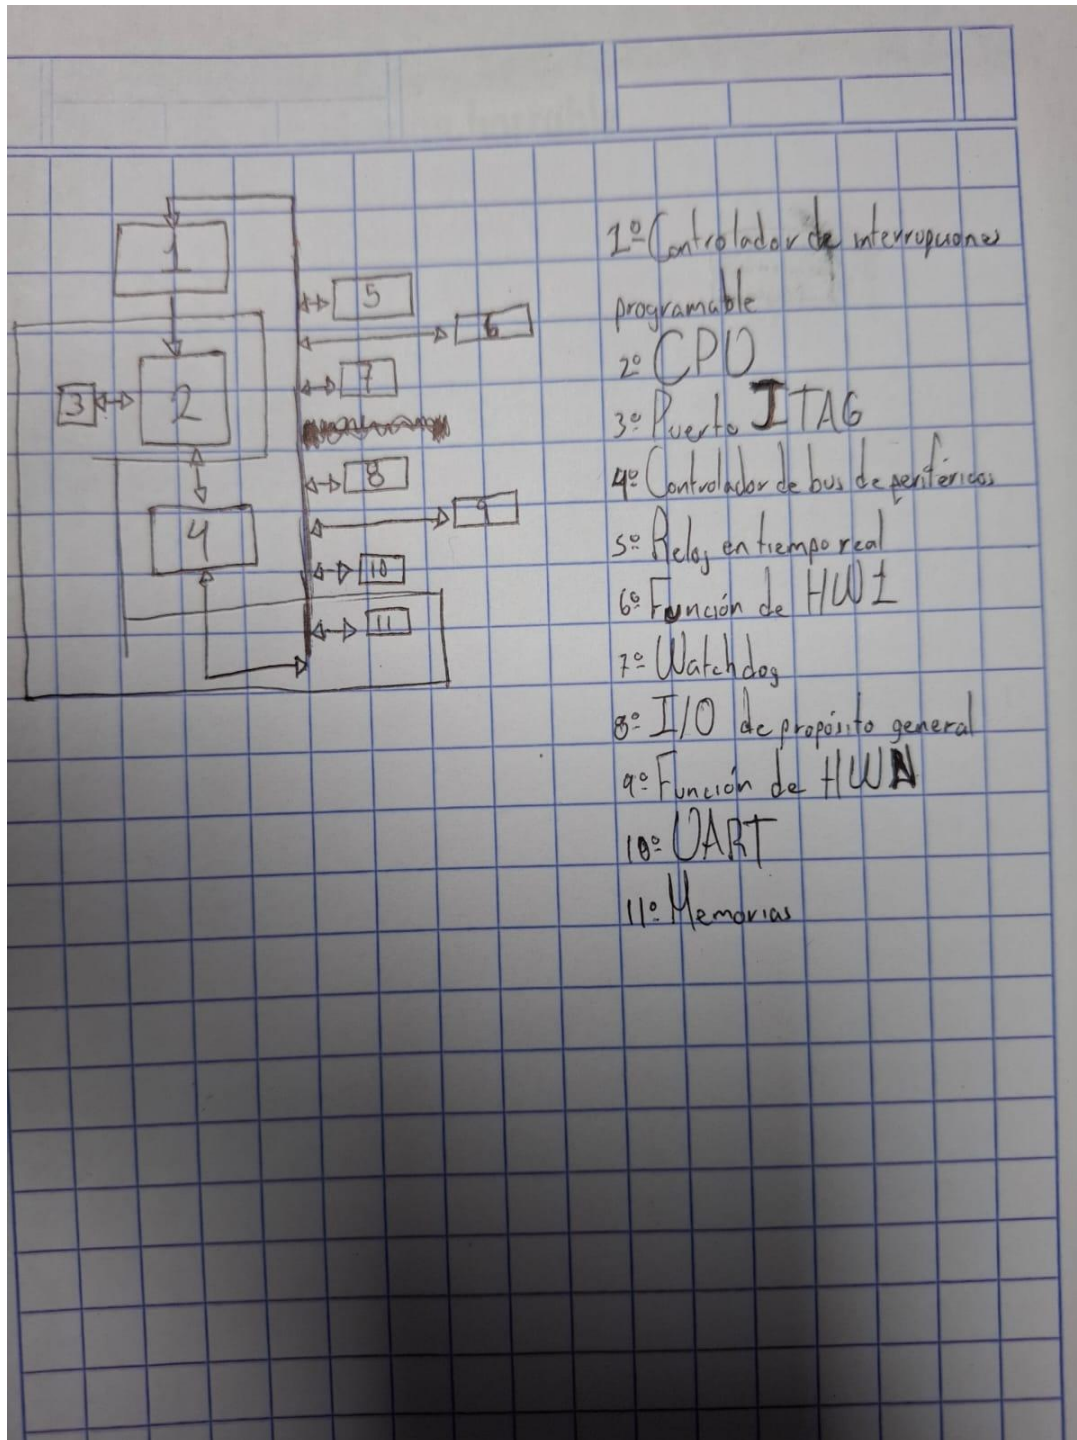 1
5
6
7
3
2
8
4
9
10
11
1º Controlador de interrupciones
programable
2º CPU
3º Puerto JTAG
4º Controlador de bus de periféricos
5º Reloj en tiempo real
6º Función de HW1
7º Watchdog
8º I/O de propósito general
9º Función de HWN
10º UART
11º Memorias